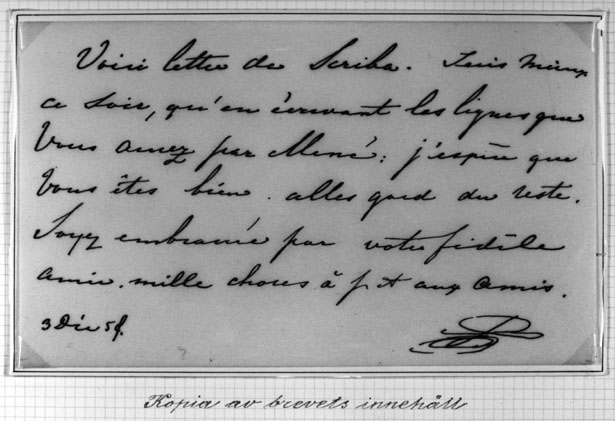 Voici lettre de Scriba. Suis mieux
ce soir, qu'en écrivant les lignes que
Vous aurez par Mené: j'espère que
Vous êtes bien. alles goed du reste.
Soyez embrassé par votre fidèle
amie. mille choses à f A aux amis.
3 Déc 58.
Kopia av brevets innehåll